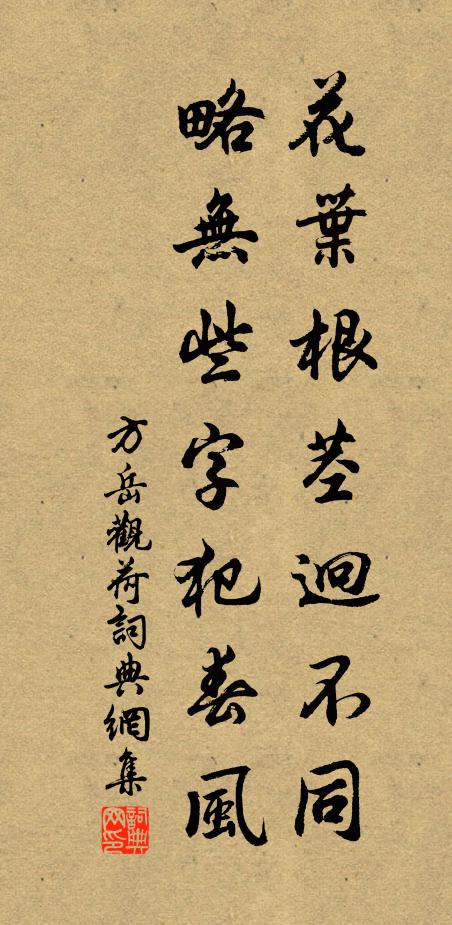 花葉根莖迥不同
略無些字犯春風
方岳觀荷詞典網集
詞典網印